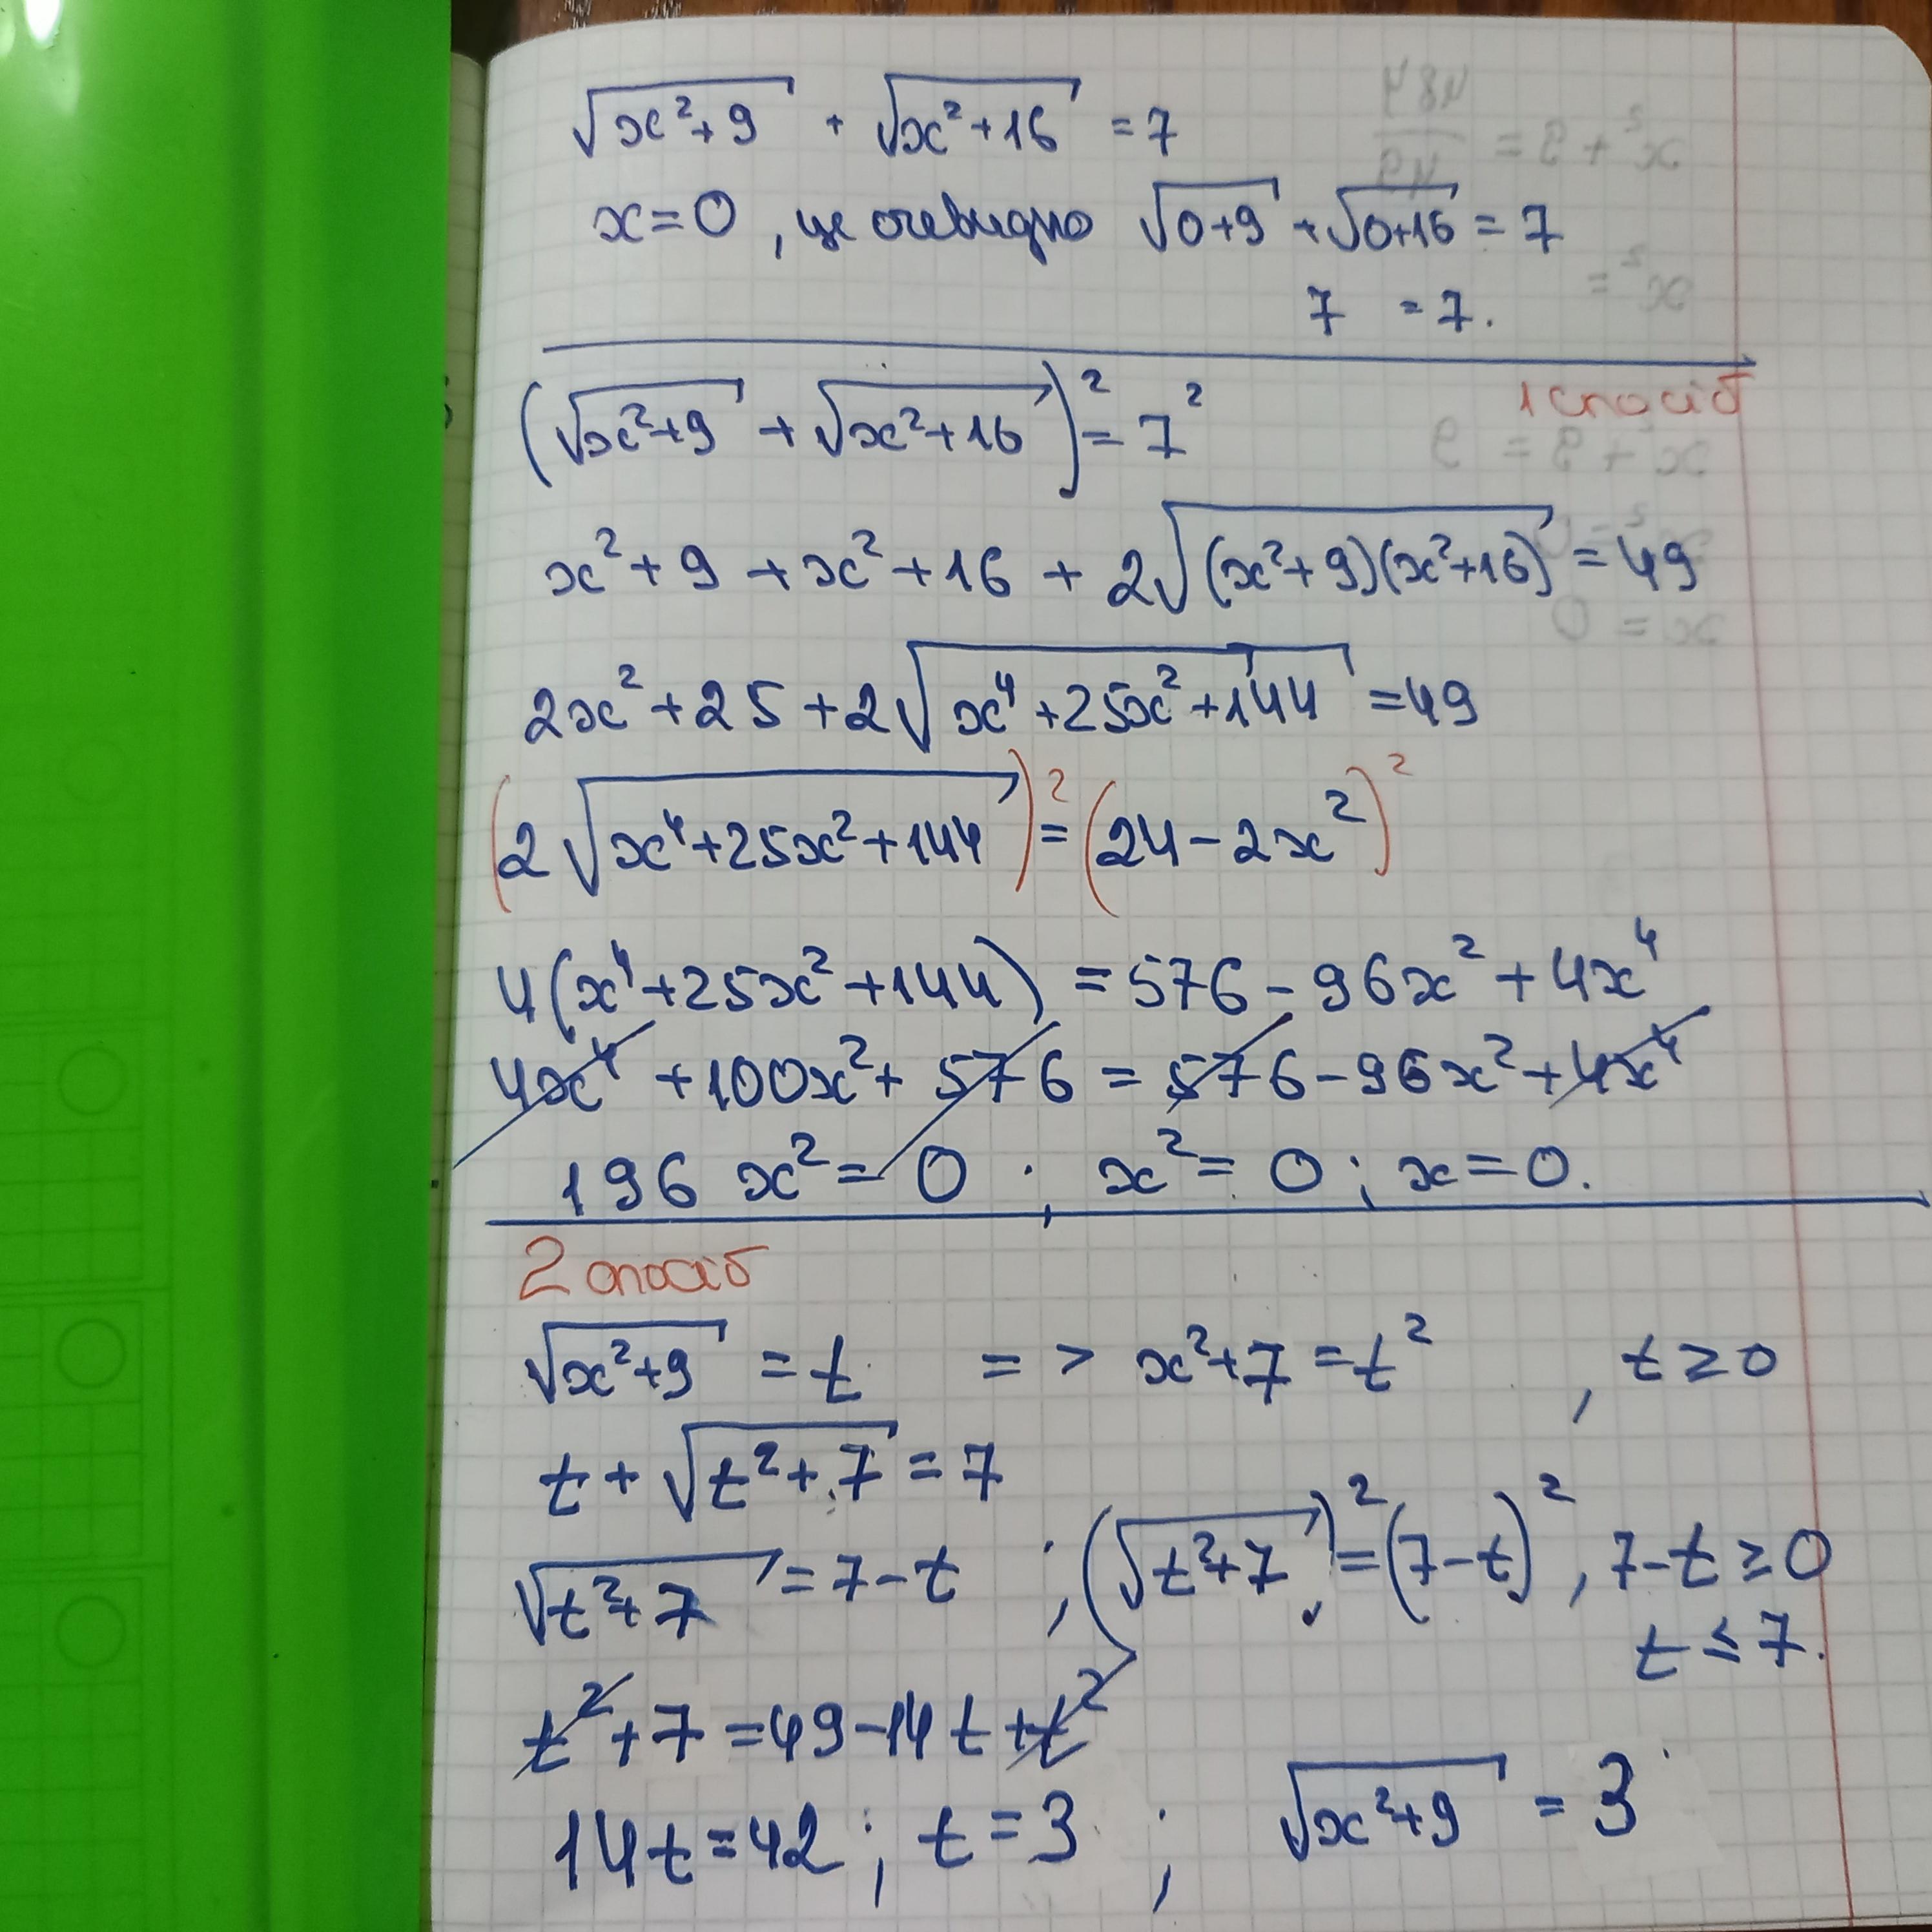 √(x²+9) + √(x²+16) = 7
x = 0, це очевидно √(0+9) + √(0+16) = 7
7 = 7.
1 спосіб
(√(x²+9) + √(x²+16))² = 7²
x² + 9 + x² + 16 + 2√((x²+9)(x²+16)) = 49
2x² + 25 + 2√(x⁴+25x²+144) = 49
(2√(x⁴+25x²+144))² = (24 - 2x²)²
4(x⁴+25x²+144) = 576 - 96x² + 4x⁴
4x⁴ + 100x² + 576 = 576 - 96x² + 4x⁴
196 x² = 0 ; x² = 0 ; x = 0.
2 спосіб
√(x²+9) = t => x²+7 = t² , t ≥ 0
t + √(t²+7) = 7
√(t²+7) = 7-t ; (√(t²+7))² = (7-t)² , 7-t ≥ 0
t ≤ 7.
t² + 7 = 49 - 14t + t²
14t = 42 ; t = 3 ; √(x²+9) = 3